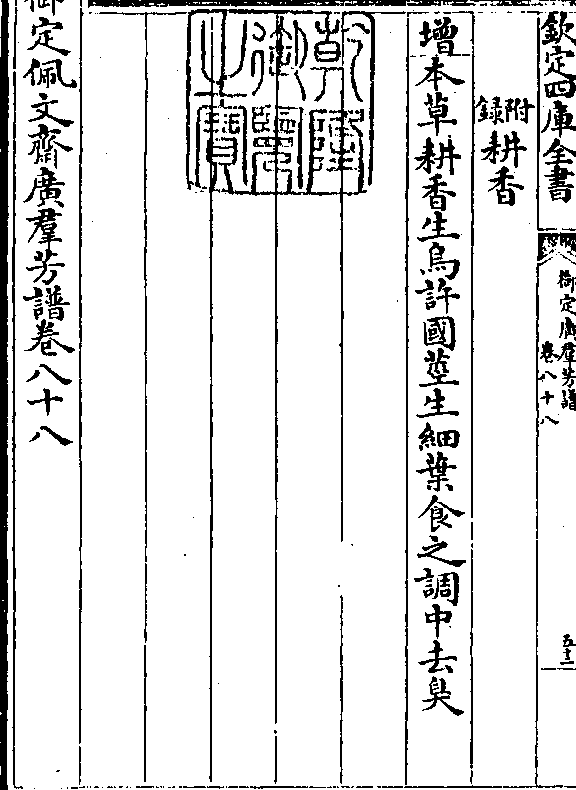 欽定四庫全書
御定廣群芳譜
卷八十八
五十二
附錄
耕香
增本草耕香生烏許國莖生細葉食之調中去臭
乾隆御覽之寶
御定佩文齋廣羣芳譜卷八十八